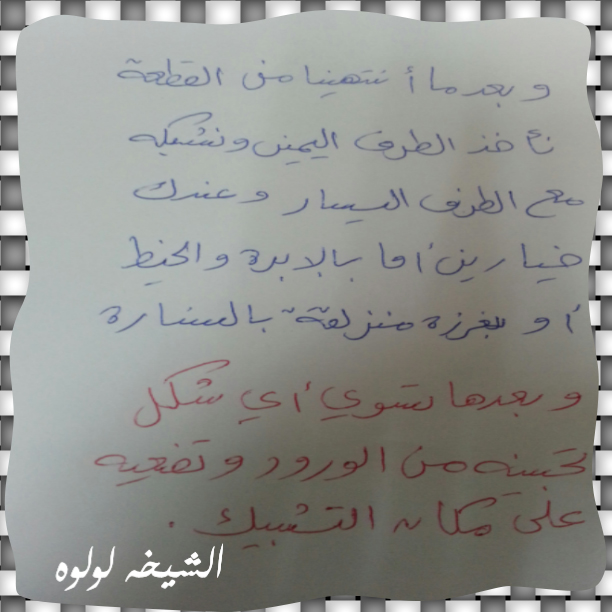 وبعد ما أنتهينا من القطعة
نأخذ الطرف اليمين ونشبكه
مع الطرف اليسار وعندك
خيارين أما بالابرة والخيط
أو بغرزة منزلقة بالسنارة
وبعدها تسوي أي شكل
تحبينه من الورود وتضعيه
على مكان التشبيك .
الشيخه لولوه